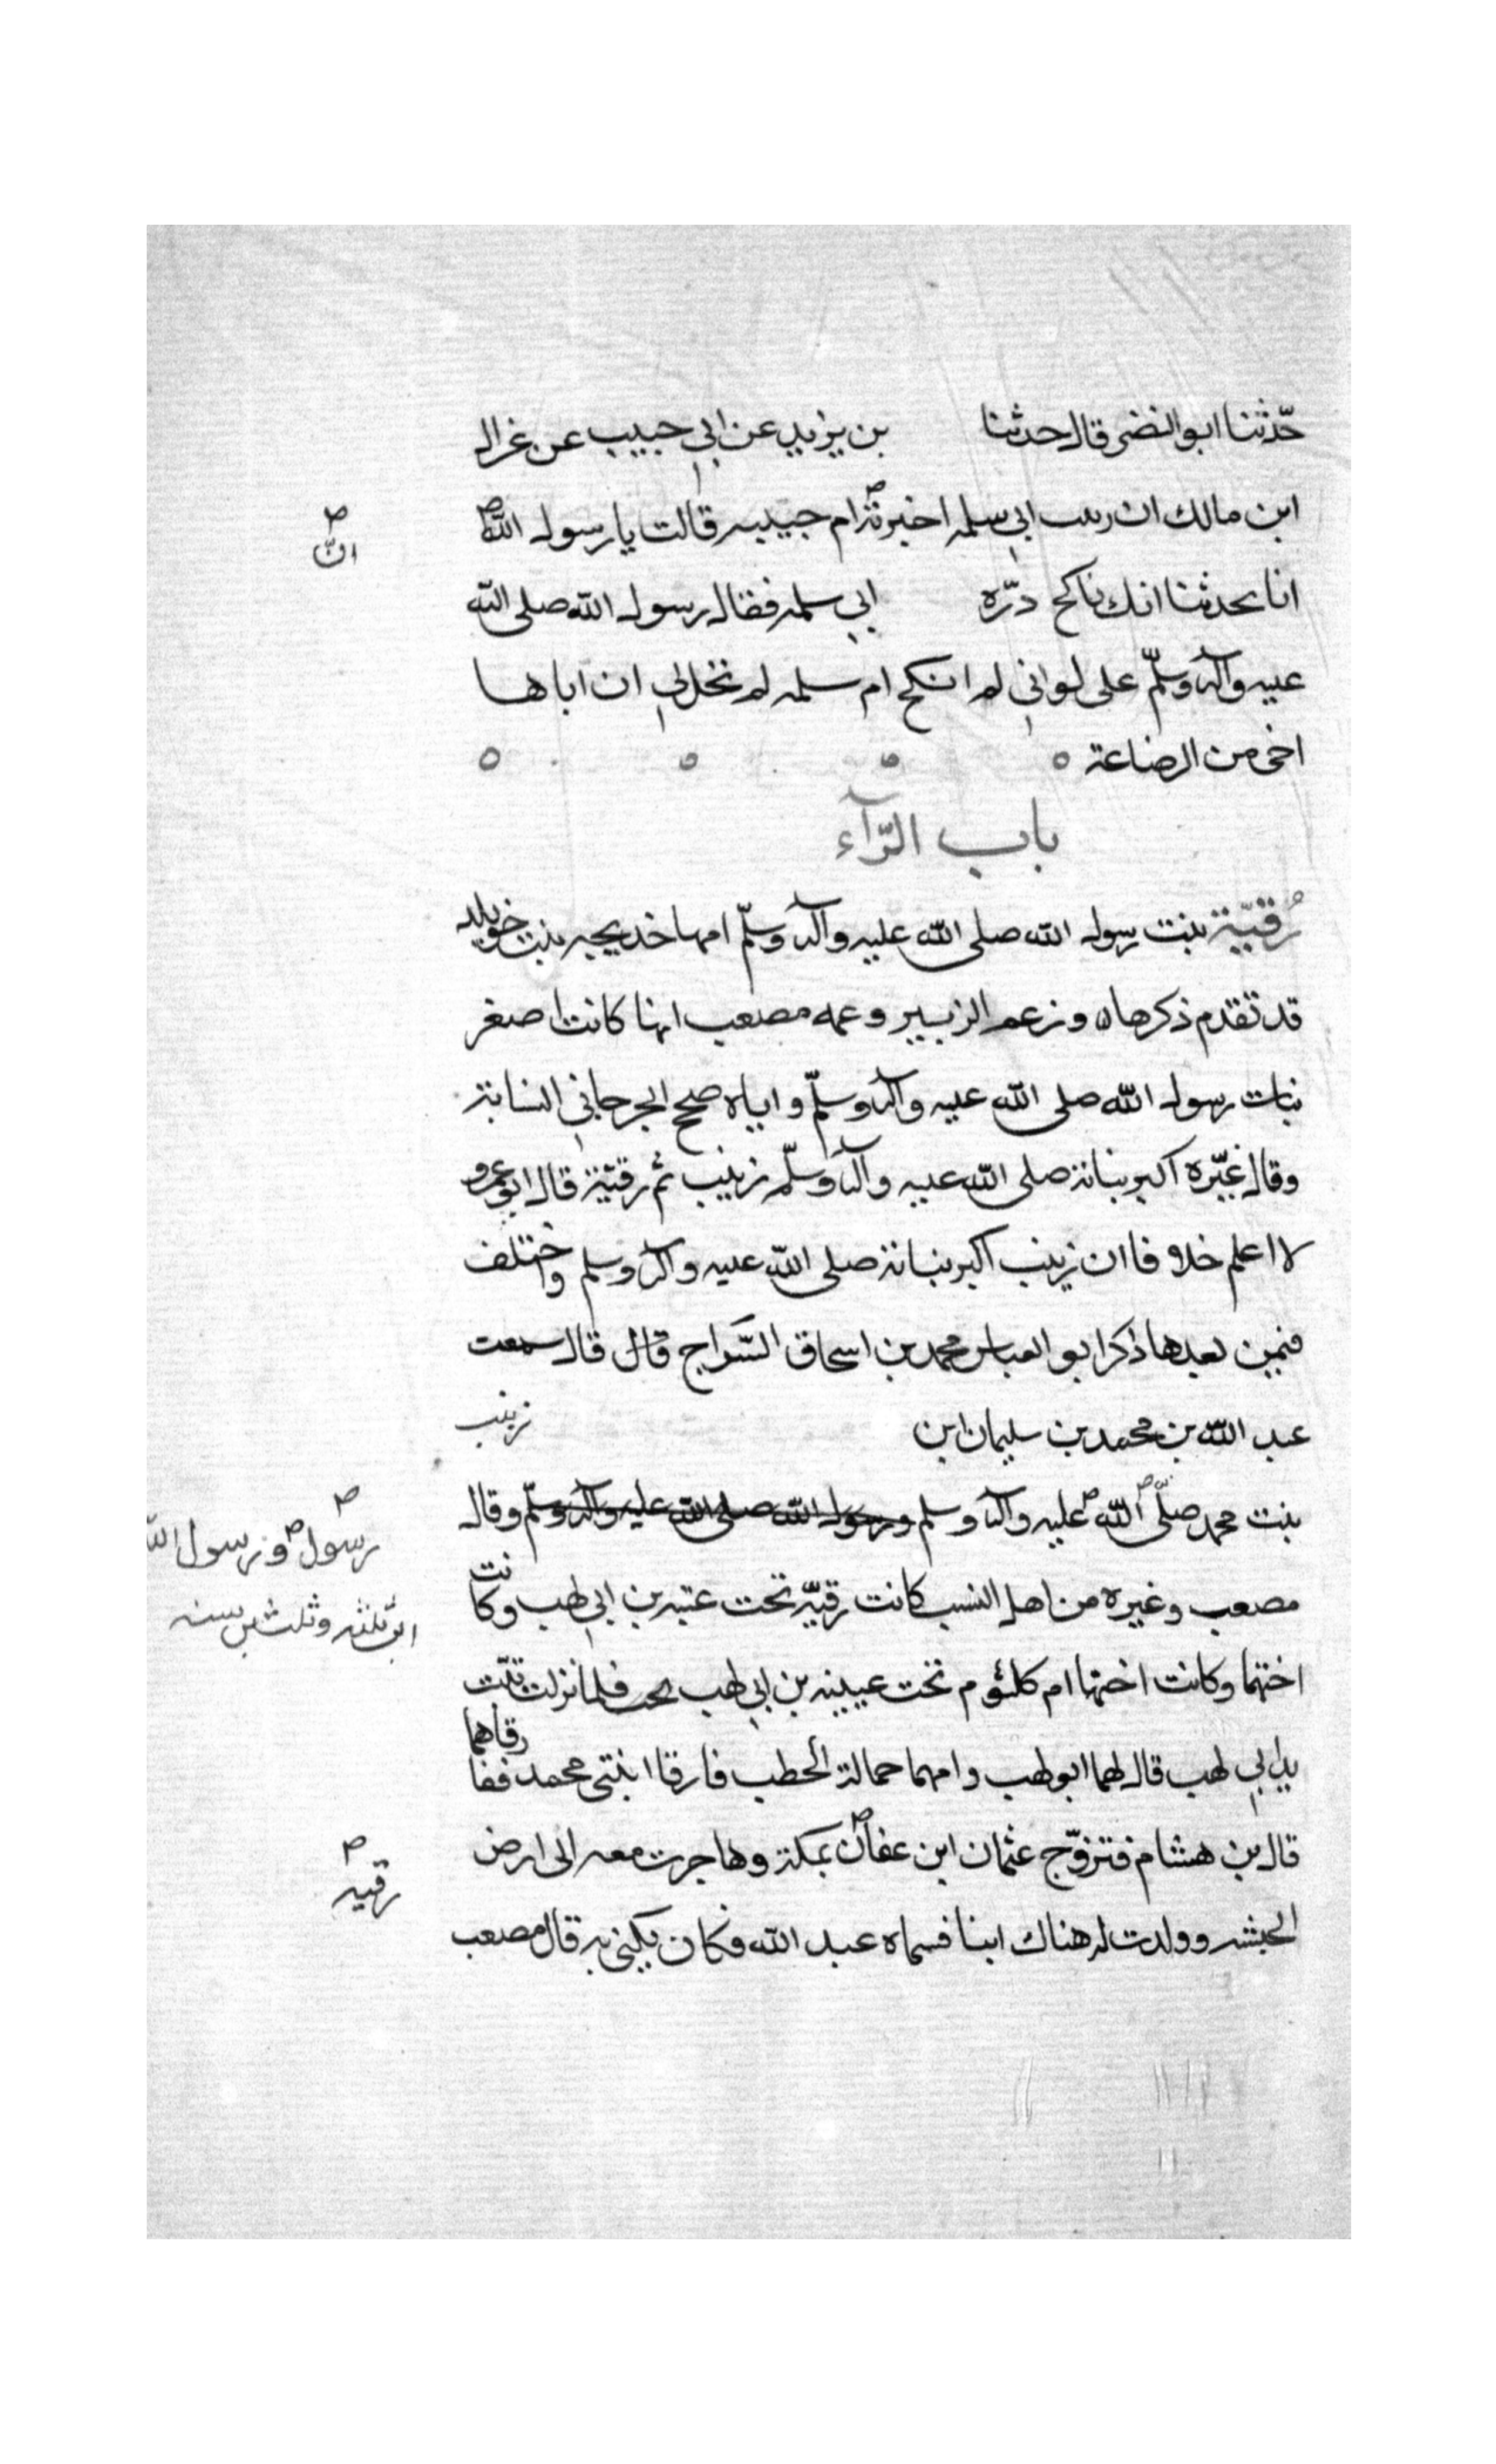 حدّثنا ابو النضر قال حدثنا بن يزيد عن ابي حبيب عن غراك
ابن مالك ان رينب ابي سلمه اخبرته ام حبيبه قالت يا رسول الله
انّ
انا بحدثنا انك ناكح درّه ابي سلمه فقال رسول الله صلى الله
عليه وآله وسلّم على لواني لم انكح ام سلمه لم تحل لي ان اباها
اخى من الرضاعة
باب الرّآء
رُقيّة بنت رسول الله صلى الله عليه وآله وسلّم امها خديجه بنت خويلد
قد تقدم ذكرها ه وزعم الزبير وعمه مصعب انها كانت اصغر
بنات رسول الله صلى الله عليه وآله وسلّم واياه صحح الجرجاني النسابة
وقال غيّره اكبر بناته صلى الله عليه وآله وسلّم زينب ثم رقيّة قال ابو عمرو
لا اعلم خلافا ان زينب اكبر بناته صلى الله عليه وآله وسلم واختلف
فيمن بعدها ذكر ابو العباس محمد بن اسحاق السّراج قال قال سمعت
عبد الله بن محمد بن سليمان ابن زينب
بنت محمد صلّى الله عليه وآله وسلم ورسول الله صلى الله عليه وآله وسلّم وقال
رسول ورسول الله
ابن ثلثه وثلثين سنه
مصعب وغيره من اهل النسب كانت رقيّه تحت عتبه بن ابي لهب وكانت
اختهما وكانت اختها ام كلثوم تحت عيينه بن ابي لهب فلما نزلت تبّت
يدا ابي لهب قال لهما ابو لهب وامهما حمالة الحطب فارقا ابنتى محمد ففارقاهما
قال بن هشام فتزوّج عثمان ابن عفان بمكة وهاجرت معه الى ارض
رقيه
الحبشه وولدت له هناك ابنا فسماه عبد الله فكان يكنى به قال مصعب